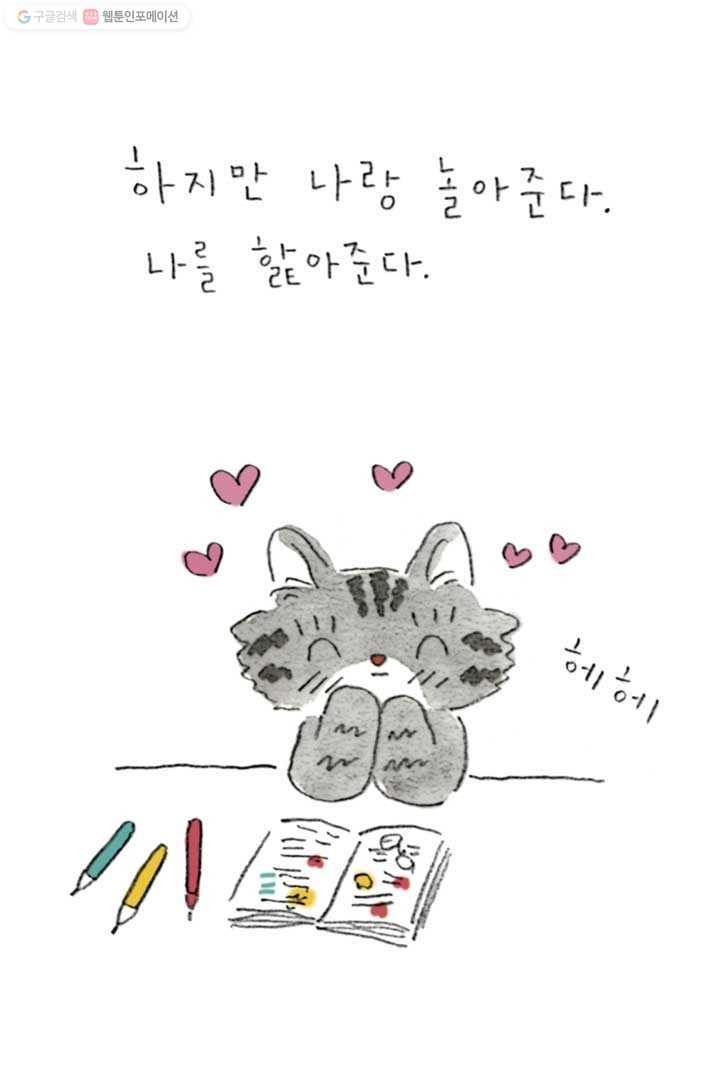 구글검색 웹툰인포메이션
하지만 나랑 놀아준다.
나를 핥아준다.
헤헤